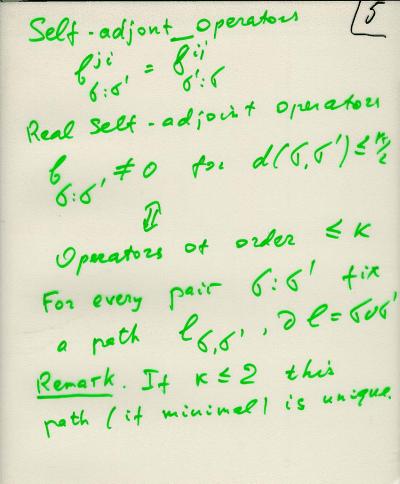 Self-adjont_Operators
5
b^{ji}_{σ:σ'} = b^{ij}_{σ':σ}
Real Self-adjoint operators
b_{σ:σ'} ≠ 0 for d(σ,σ') ≤ K/2
⇕
Operators of order ≤ K
For every pair σ:σ' fix
a path l_{σ,σ'}, ∂l = σ∪σ'
Remark. If K ≤ 2 this
path (if minimal) is unique.